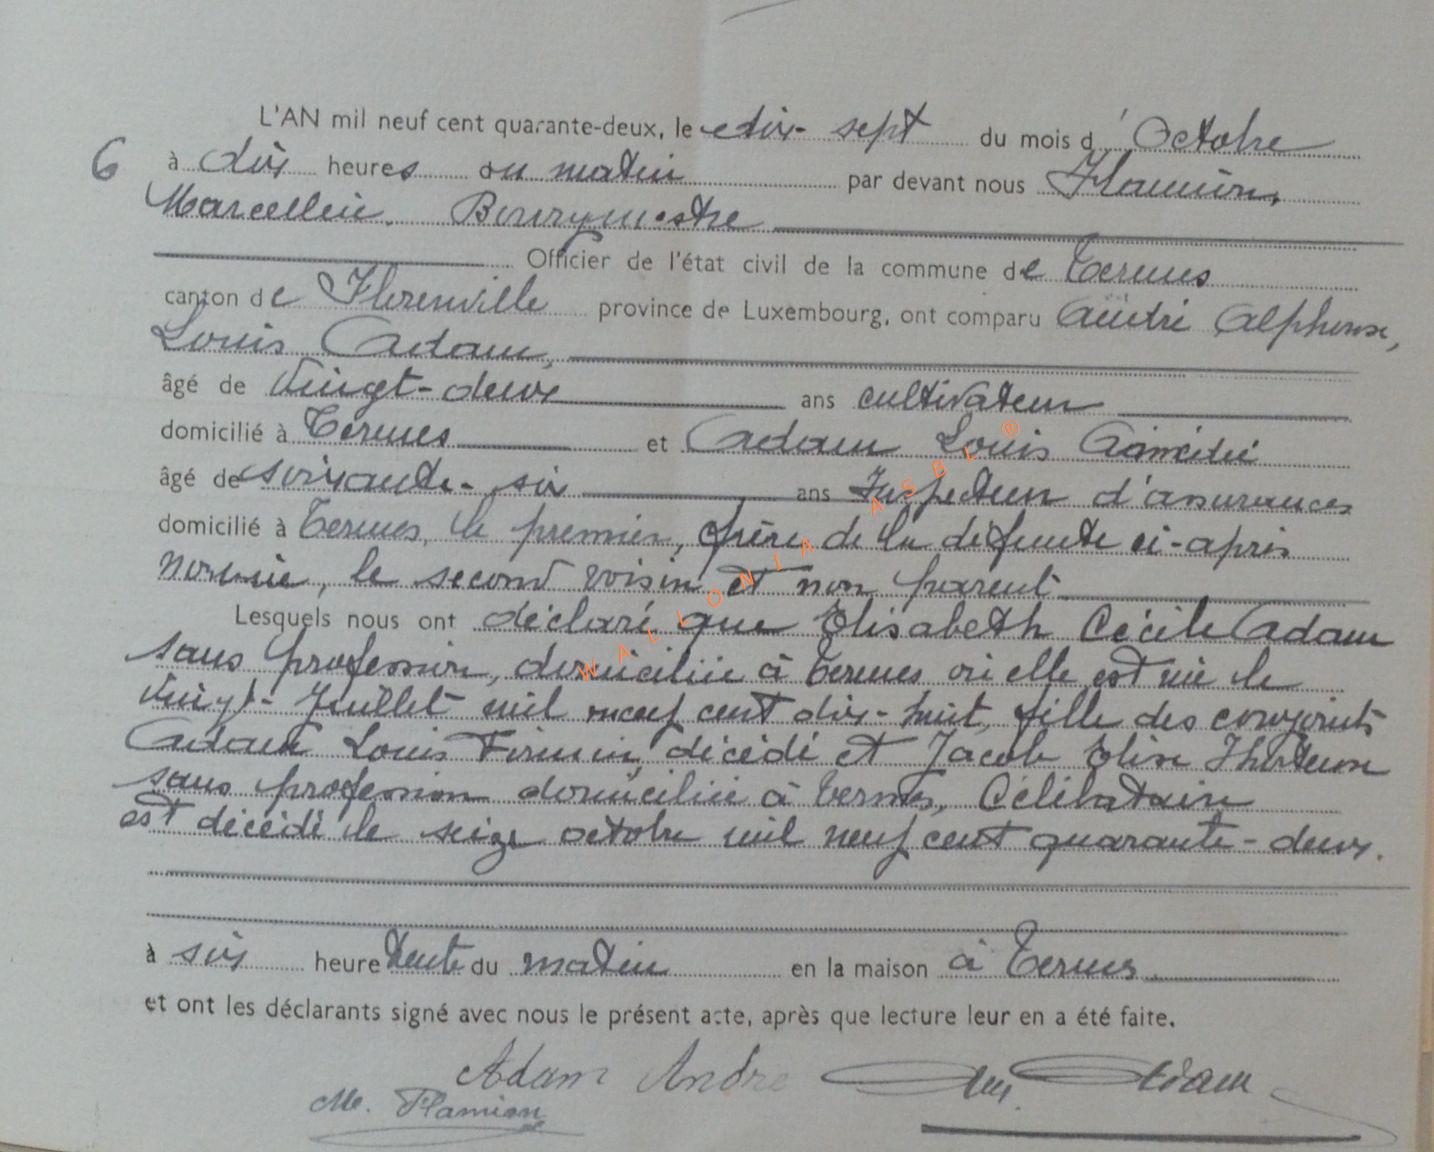 L'AN mil neuf cent quarante-deux, le dix-sept du mois d'Octobre
6 à dix heures du matin par devant nous Flamion,
Marcellin, Bourgmestre
Officier de l'état civil de la commune de Termes
canton de Florenville province de Luxembourg, ont comparu André Alphonse,
Louis Adam,
âgé de vingt-deux ans cultivateur
domicilié à Termes et Adam Louis Aimédié
âgé de soixante-six ans Inspecteur d'assurances
domicilié à Termes, le premier, frère de la defunte ci-après
nommée, le second voisin et non parent
Lesquels nous ont déclaré que Elisabeth Cécile Adam
sans profession, domiciliée à Termes où elle est née le
vingt-Juillet mil neuf cent dix-huit, fille des conjoints
Adam Louis Firmin, décédé et Jacob Elise Hortense
sans profession domiciliée à Termes, Célibataire
est décédé le seize octobre mil neuf cent quarante-deux.
à six heure trente du matin en la maison à Termes
et ont les déclarants signé avec nous le présent acte, après que lecture leur en a été faite.
Adam André Adam
M. Flamion
WALLONIA ASBL ®